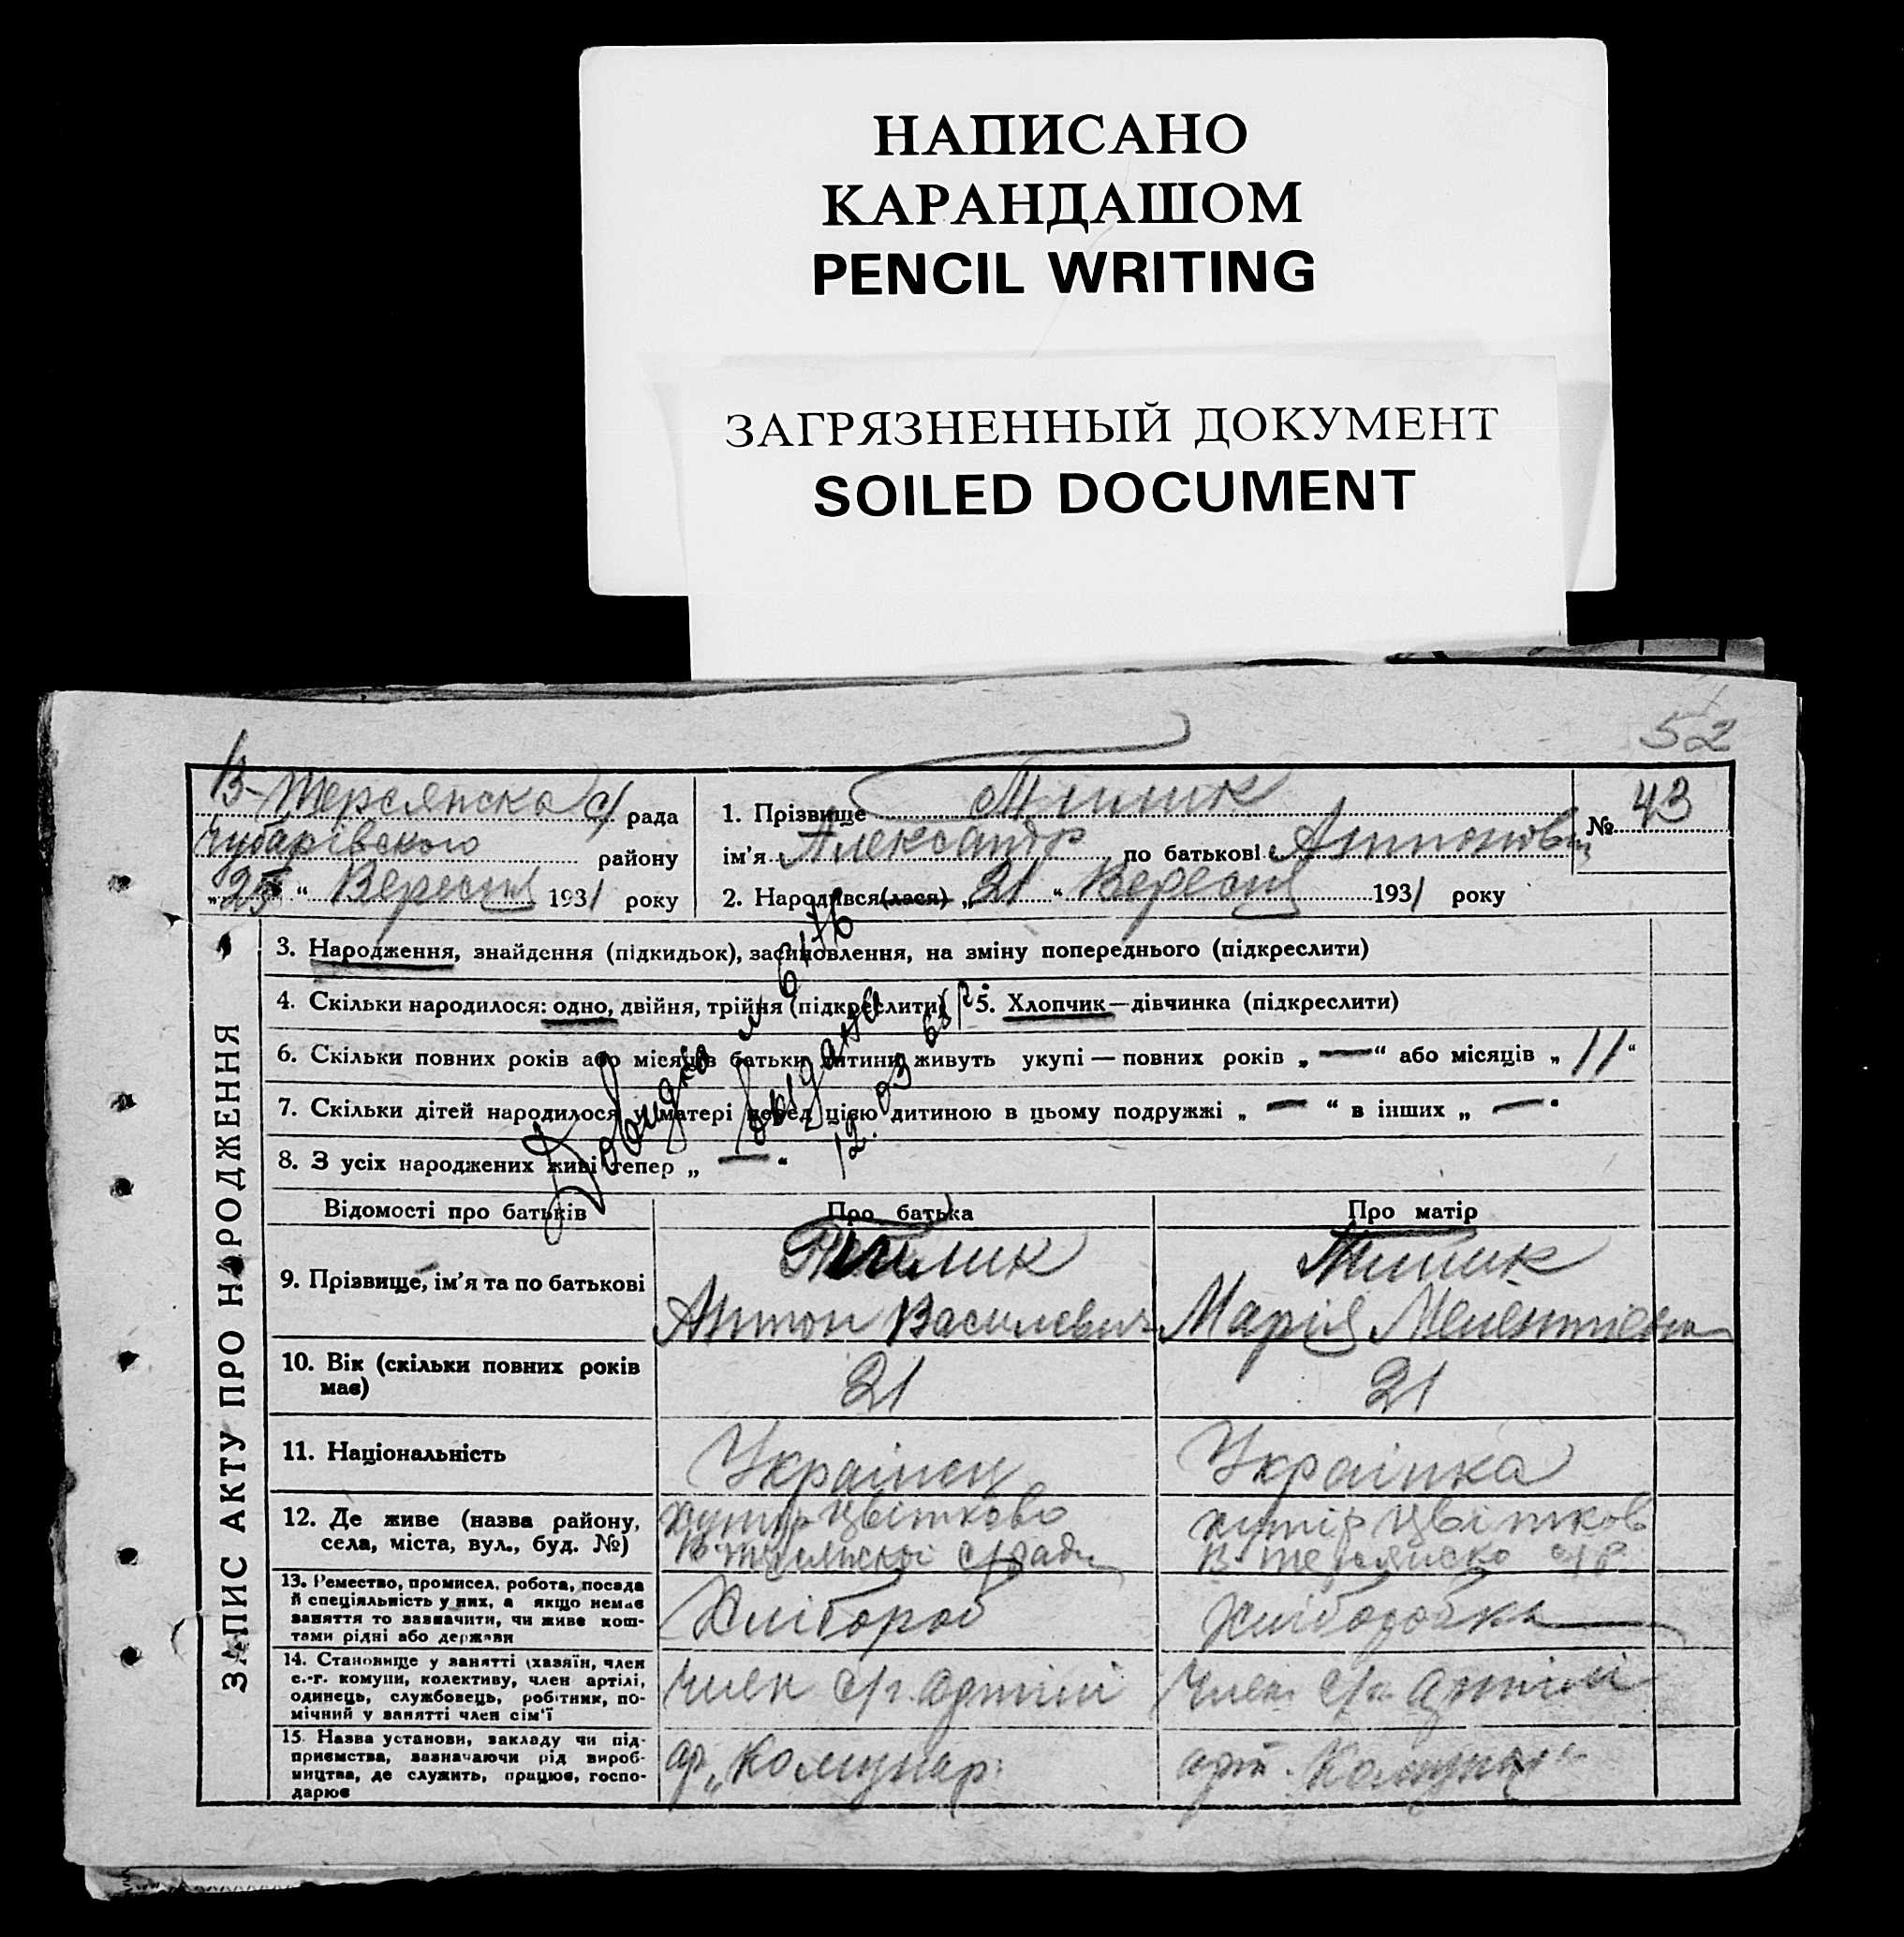 НАПИСАНО
КАРАНДАШОМ
PENCIL WRITING
ЗАГРЯЗНЕННЫЙ ДОКУМЕНТ
SOILED DOCUMENT
52
В-Терсянска с/ рада
Чубарівського району
„25“ Вересня 1931 року
1. Прізвище
ім'я Александр по батькові Антонович
№ 43
2. Народився(лася) „21“ Вересня 1931 року
ЗАПИС АКТУ ПРО НАРОДЖЕННЯ
3. Народження, знайдення (підкидьок), засиновлення, на зміну попереднього (підкреслити)
4. Скільки народилося: одно, двійня, трійня (підкреслити)
5. Хлопчик—дівчинка (підкреслити)
6. Скільки повних років або місяців батьки дитини живуть укупі — повних років „—“ або місяців „11“
7. Скільки дітей народилося у матері перед цією дитиною в цьому подружжі „—“ в інших „—“
8. З усіх народжених живі тепер „—“
12.03 63
Відомості про батьків
Про батька
Про матір
9. Прізвище, ім'я та по батькові
Антон Василевич
Марія Мелентиевна
10. Вік (скільки повних років має)
21
21
11. Національність
Українец
Українка
12. Де живе (назва району, села, міста, вул., буд. №)
хутір Цвітково
с/ради
хутір Цвітково
В-терсянско с/р.
13. Ремество, промисел, робота, посада й спеціяльність у них, а якщо немає заняття то зазначити, чи живе коштами рідні або держави
Хлібороб
Хліборобка
14. Становище у занятті (хазяїн, член с.-г. комуни, колективу, член артілі, одинець, службовець, робітник, помічний у занятті член сім'ї
Член с/г. артілі
Член с/г. артілі
15. Назва установи, закладу чи підприємства, зазначаючи рід виробництва, де служить, працює, господарює
ар. „Комунар.
арт. „Комунар“